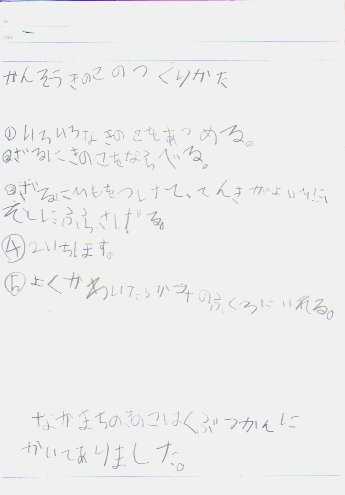 かんそうきのこのつくりかた
①いろいろなきのこをあつめる。
②ざるにきのこをならべる。
③ざるにひもをつけて、てんきがよいひに
そとにぶらさげる。
④2いちほす。
⑤よくかわいたらかみのふくろにいれる。
なかまちのきのこはくぶつかんに
かいてありました。